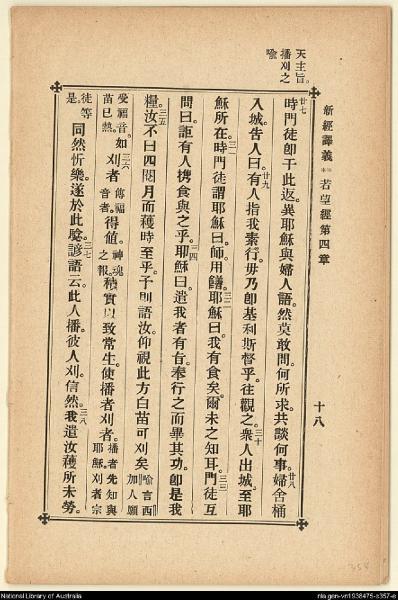 新經譯義 若望經第四章 十八
天主旨。
播刈之
喻
廿七時門徒卽于此返。異耶穌與婦人語。然莫敢問。何所求。共談何事。廿八婦舍桶
入城。告人曰。廿九有人指我素行。毋乃卽基利斯督乎。往觀之。三十衆人出城。至耶
穌所在。三一時門徒謂耶穌曰。師。用饍。三二耶穌曰。我有食矣。爾未之知耳。三三門徒互
問曰。詎有人携食與之乎。三四耶穌曰。遣我者有旨。奉行之而畢其功。卽是我
糧。三五汝不曰四閱月而穫時至乎。予則語汝。仰視此方。白苗可刈矣。喻言西加人願
受福音。如苗已熟。三六刈者傳福音者。得値。神魂之報。積實以致常生。使播者刈者。播者先知與耶穌。刈者宗
徒等是。同然忻樂。遂於此騐。三七諺語云。此人播。彼人刈。信然。三八我遣汝穫所未勞。
National Library of Australia
nla.gen-vn1938475-s357-e